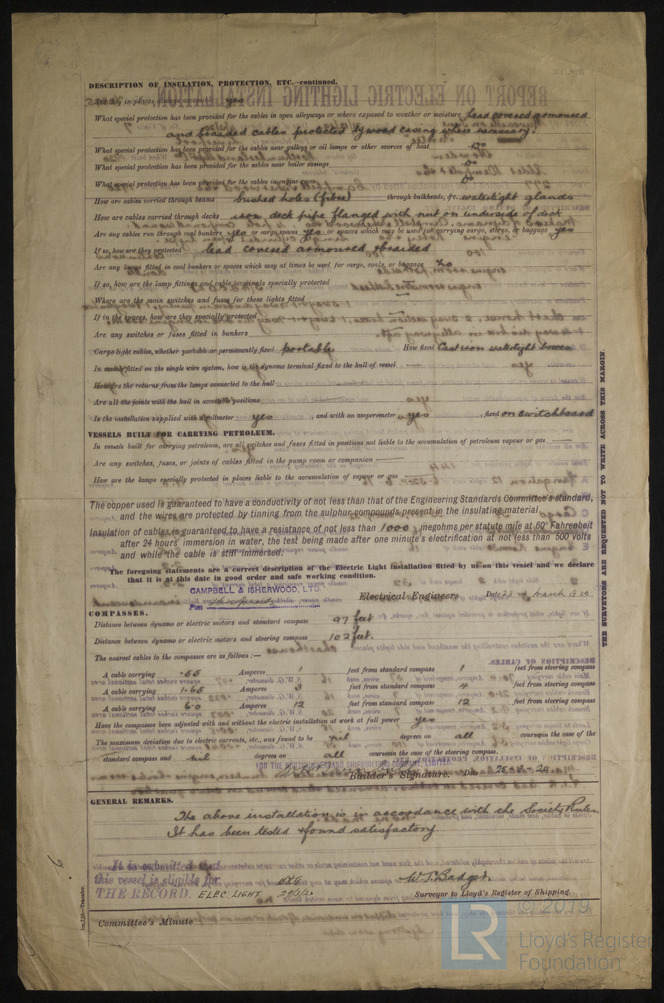 DESCRIPTION OF INSULATION, PROTECTION, ETC.—continued.
in places always accessible yes
What special protection has been provided for the cables in open alleyways or where exposed to weather or moisture Lead covered armoured
and braided cables protected by wood casing where necessary.
What special protection has been provided for the cables near galleys or oil lamps or other sources of heat do
What special protection has been provided for the cables near boiler casings do
What special protection has been provided for the cables in engine room do
How are cables carried through beams bushed holes (fibre) through bulkheads, &c. watertight glands
How are cables carried through decks iron deck pipe flanged with nut on underside of deck
Are any cables run through coal bunkers yes or cargo spaces yes or spaces which may be used for carrying cargo, stores, or baggage yes
If so, how are they protected lead covered armoured & braided
Are any lamps fitted in coal bunkers or spaces which may at times be used for cargo, coals, or baggage No
If so, how are the lamp fittings and cable terminals specially protected
Where are the main switches and fuses for these lights fitted
If in the spaces, how are they specially protected
Are any switches or fuses fitted in bunkers
Cargo light cables, whether portable or permanently fixed portable How fixed Cast iron watertight boxes
In vessels fitted on the single wire system, how is the dynamo terminal fixed to the hull of vessel
How are the returns from the lamps connected to the hull
Are all the joints with the hull in accessible positions
Is the installation supplied with a voltmeter yes, and with an amperemeter yes, fixed on switchboard
VESSELS BUILT FOR CARRYING PETROLEUM.
In vessels built for carrying petroleum, are all switches and fuses fitted in positions not liable to the accumulation of petroleum vapour or gas
Are any switches, fuses, or joints of cables fitted in the pump room or companion
How are the lamps specially protected in places liable to the accumulation of vapour or gas
The copper used is guaranteed to have a conductivity of not less than that of the Engineering Standards Committee's standard,
and the wires are protected by tinning from the sulphur compounds present in the insulating material.
Insulation of cables is guaranteed to have a resistance of not less than 1000 megohms per statute mile at 60° Fahrenheit
after 24 hours' immersion in water, the test being made after one minute's electrification at not less than 500 volts
and while the cable is still immersed.
The foregoing statements are a correct description of the Electric Light installation fitted by us on this vessel and we declare
that it is at this date in good order and safe working condition.
CAMPBELL & ISHERWOOD, LTD.
Electrical Engineers Date 23rd March 1920
COMPASSES.
Distance between dynamo or electric motors and standard compass 97 feet
Distance between dynamo or electric motors and steering compass 102 feet.
The nearest cables to the compasses are as follows:—
A cable carrying .55 Amperes 1 feet from standard compass 1 feet from steering compass
A cable carrying 1.65 Amperes 3 feet from standard compass 4 feet from steering compass
A cable carrying 6.0 Amperes 12 feet from standard compass 12 feet from steering compass
Have the compasses been adjusted with and without the electric installation at work at full power yes
The maximum deviation due to electric currents, etc., was found to be nil degrees on all course in the case of the
standard compass and nil degrees on all course in the case of the steering compass.
Builder's Signature. Date
GENERAL REMARKS.
The above installation is in accordance with the Society's Rules.
It has been tested & found satisfactory.
It is submitted that
this vessel is eligible for
THE RECORD. ELEC. LIGHT
W. T. Badger
Surveyor to Lloyd's Register of Shipping.
Committee's Minute
THE SURVEYORS ARE REQUESTED NOT TO WRITE ACROSS THIS MARGIN.
© 2019
LR
Lloyd's Register
Foundation